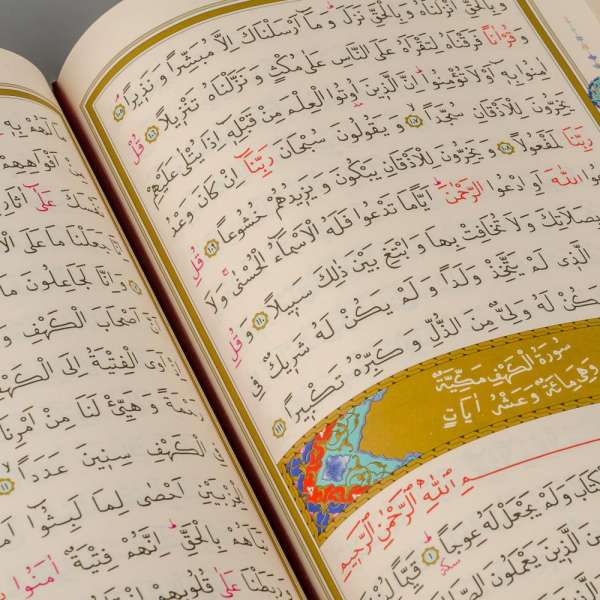 وَبِالْحَقِّ اَنْزَلْنَاهُ وَبِالْحَقِّ نَزَلَ وَمَا اَرْسَلْنَاكَ اِلَّا مُبَشِّرًا وَنَذِيرًا ١٠٥
وَقُرْاٰنًا فَرَقْنَاهُ لِتَقْرَاَهُ عَلَى النَّاسِ عَلٰى مُكْثٍ وَنَزَّلْنَاهُ تَنْزِيلًا ١٠٦ قُلْ
اٰمِنُوا بِهِ اَوْ لَا تُؤْمِنُوا اِنَّ الَّذِينَ اُوتُوا الْعِلْمَ مِنْ قَبْلِهِ اِذَا يُتْلٰى عَلَيْهِمْ
يَخِرُّونَ لِلْاَذْقَانِ سُجَّدًا ١٠٧ وَيَقُولُونَ سُبْحَانَ رَبِّنَا اِنْ كَانَ وَعْدُ
رَبِّنَا لَمَفْعُولًا ١٠٨ وَيَخِرُّونَ لِلْاَذْقَانِ يَبْكُونَ وَيَزِيدُهُمْ خُشُوعًا ١٠٩ قُلِ
اللّٰهَ اَوِ ادْعُوا الرَّحْمٰنَ اَيًّا مَا تَدْعُوا فَلَهُ الْاَسْمَاءُ الْحُسْنٰى وَلَا
بِصَلَاتِكَ وَلَا تُخَافِتْ بِهَا وَابْتَغِ بَيْنَ ذٰلِكَ سَبِيلًا ١١٠ وَقُلِ
الَّذِى لَمْ يَتَّخِذْ وَلَدًا وَلَمْ يَكُنْ لَهُ شَرِيكٌ فِى
يَكُنْ لَهُ وَلِىٌّ مِنَ الذُّلِّ وَكَبِّرْهُ تَكْبِيرًا ١١١
سُورَةُ الْكَهْفِ مَكِّيَّةٌ
وَهِىَ مِائَةٌ وَعَشْرُ اٰيَاتٍ
مِ اللّٰهِ الرَّحْمٰنِ الرَّحِيمِ
الْكِتَابَ وَلَمْ يَجْعَلْ لَهُ عِوَجًا ١ قَيِّمًا
الَّذِينَ يَعْمَلُونَ
مَا لَهُمْ بِهِ
مِنْ اَفْوَاهِهِمْ
نَفْسَكَ عَلٰى اٰثَارِ
اِنَّا جَعَلْنَا مَا عَلَى
وَاِنَّا لَجَاعِلُونَ مَا
اَنَّ اَصْحَابَ الْكَهْفِ وَ
اَوَى الْفِتْيَةُ اِلَى الْكَهْفِ
رَحْمَةً وَهَيِّئْ لَنَا مِنْ اَمْرِنَا
الْكَهْفِ سِنِينَ عَدَدًا ١١
الْحِزْبَيْنِ اَحْصٰى لِمَا لَبِثُوا
نَبَاَهُمْ بِالْحَقِّ اِنَّهُمْ فِتْيَةٌ اٰمَنُوا
وَرَبَطْنَا عَلٰى قُلُوبِهِمْ